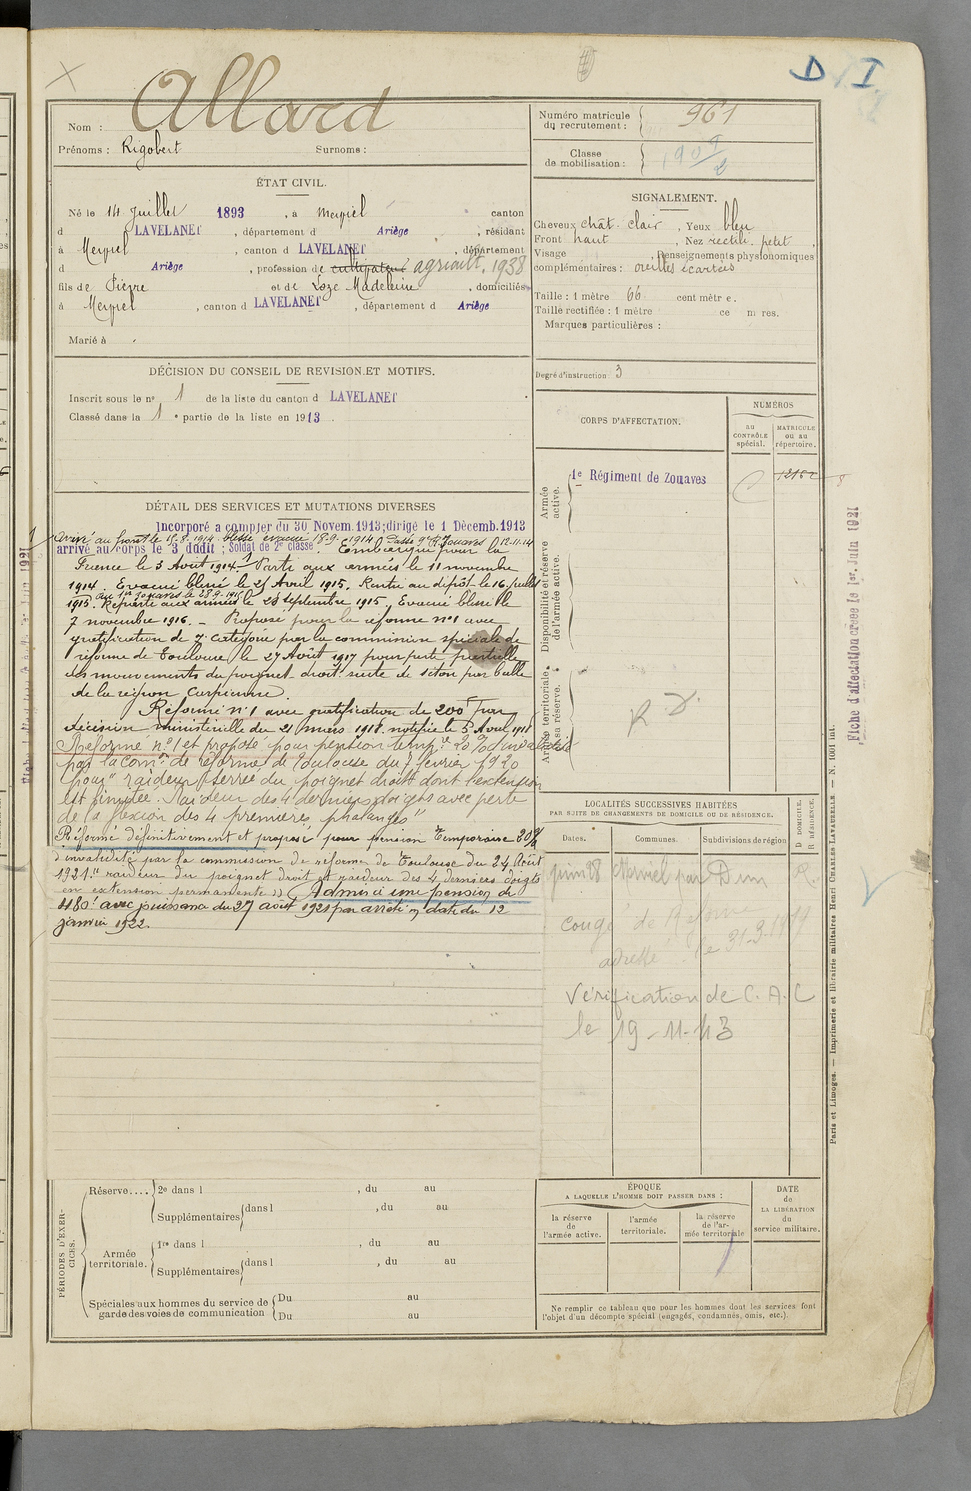 D I
Allard
Nom :
Prénoms : Rigobert Surnoms :
Numéro matricule du recrutement : 961
Classe de mobilisation :
ÉTAT CIVIL.
Né le 14 Juillet 1893, à canton
d LAVELANET, département d Ariège, résidant
à, canton d LAVELANET, département
d Ariège, profession de cultivateur 1938
fils de Pierre et de Loze Madeleine, domiciliés
à, canton d LAVELANET, département d Ariège
Marié à
SIGNALEMENT.
Cheveux chât. clair, Yeux bleu
Front haut, Nez rectil. petit,
Visage, Renseignements physionomiques
complémentaires : oreilles écartées
Taille : 1 mètre 66 centimètre.
Taille rectifiée : 1 mètre ce m res.
Marques particulières :
Degré d'instruction : 3
DÉCISION DU CONSEIL DE REVISION ET MOTIFS.
Inscrit sous le nº 1 de la liste du canton d LAVELANET
Classé dans la 1e partie de la liste en 1913.
CORPS D'AFFECTATION.
NUMÉROS
AU CONTRÔLE spécial.
MATRICULE ou au répertoire.
Armée active.
1e Régiment de Zouaves
Disponibilité et réserve de l'armée active.
Armée territoriale et sa réserve.
DÉTAIL DES SERVICES ET MUTATIONS DIVERSES
Incorporé a compter du 30 Novem. 1913; dirigé le 1 Décemb. 1913
arrivé au corps le 3 dudit ; Soldat de 2e classe. Embarqué pour la
France le 3 Août 1914. Parti aux armées le 11 novembre
1914. Evacué blessé le 25 Avril 1915. Rentré au dépôt le 16 juillet
1915. Reparti aux armées le 28 septembre 1915. Evacué blessé le
7 novembre 1916. - Proposé pour la réforme nº1 avec
gratification de 7e catégorie par la commission spéciale de
réforme de Toulouse le 27 Août 1917 pour perte partielle
des mouvements du poignet droit suite de séton par balle
de la région carpienne.
Réformé nº1 avec gratification de 200 F par
décision ministérielle du 21 mars 1918 notifiée le 5 Avril 1918
Réformé nº1 et proposé pour pension tempre 20 % d'invalidité
par la comon de réforme de Toulouse du 7 février 1920
pour "raideur serrée du poignet droit dont l'extension
est limitée. Raideur des 4 derniers doigts avec perte
de la flexion des 4 premières phalanges"
Réformé définitivement et proposé pour pension temporaire 20%
d'invalidité par la commission de réforme de Toulouse du 24 Août
1921 "raideur du poignet droit et raideur des 4 derniers doigts
en extension permanente". Admis à une pension de
480f avec jouissance du 27 août 1921 par arrêté en date du 12
janvier 1922.
Fiche d'affectation créée le 1er. Juin 1921
LOCALITÉS SUCCESSIVES HABITÉES
PAR SUITE DE CHANGEMENTS DE DOMICILE OU DE RÉSIDENCE.
Dates. Communes. Subdivisions de région
D DOMICILE. R RÉSIDENCE.
juin 38 par Dun R.
Congé de Réforme
adressé le 31-3-1919
Vérification de C. A. C
le 19-11-43
PÉRIODES D'EXERCICES.
Réserve.... 2e dans l, du au
Supplémentaires dans l, du au
Armée territoriale. 1re dans l, du au
Supplémentaires dans l, du au
Spéciales aux hommes du service de garde des voies de communication Du au
Du au
ÉPOQUE
A LAQUELLE L'HOMME DOIT PASSER DANS :
la réserve de l'armée active.
l'armée territoriale.
la réserve de l'armée territoriale
DATE de LA LIBÉRATION du service militaire.
Ne remplir ce tableau que pour les hommes dont les services font
l'objet d'un décompte spécial (engagés, condamnés, omis, etc.).
Paris et Limoges. — Imprimerie et librairie militaires Henri CHARLES-LAVAUZELLE. — N. 1001 bis.